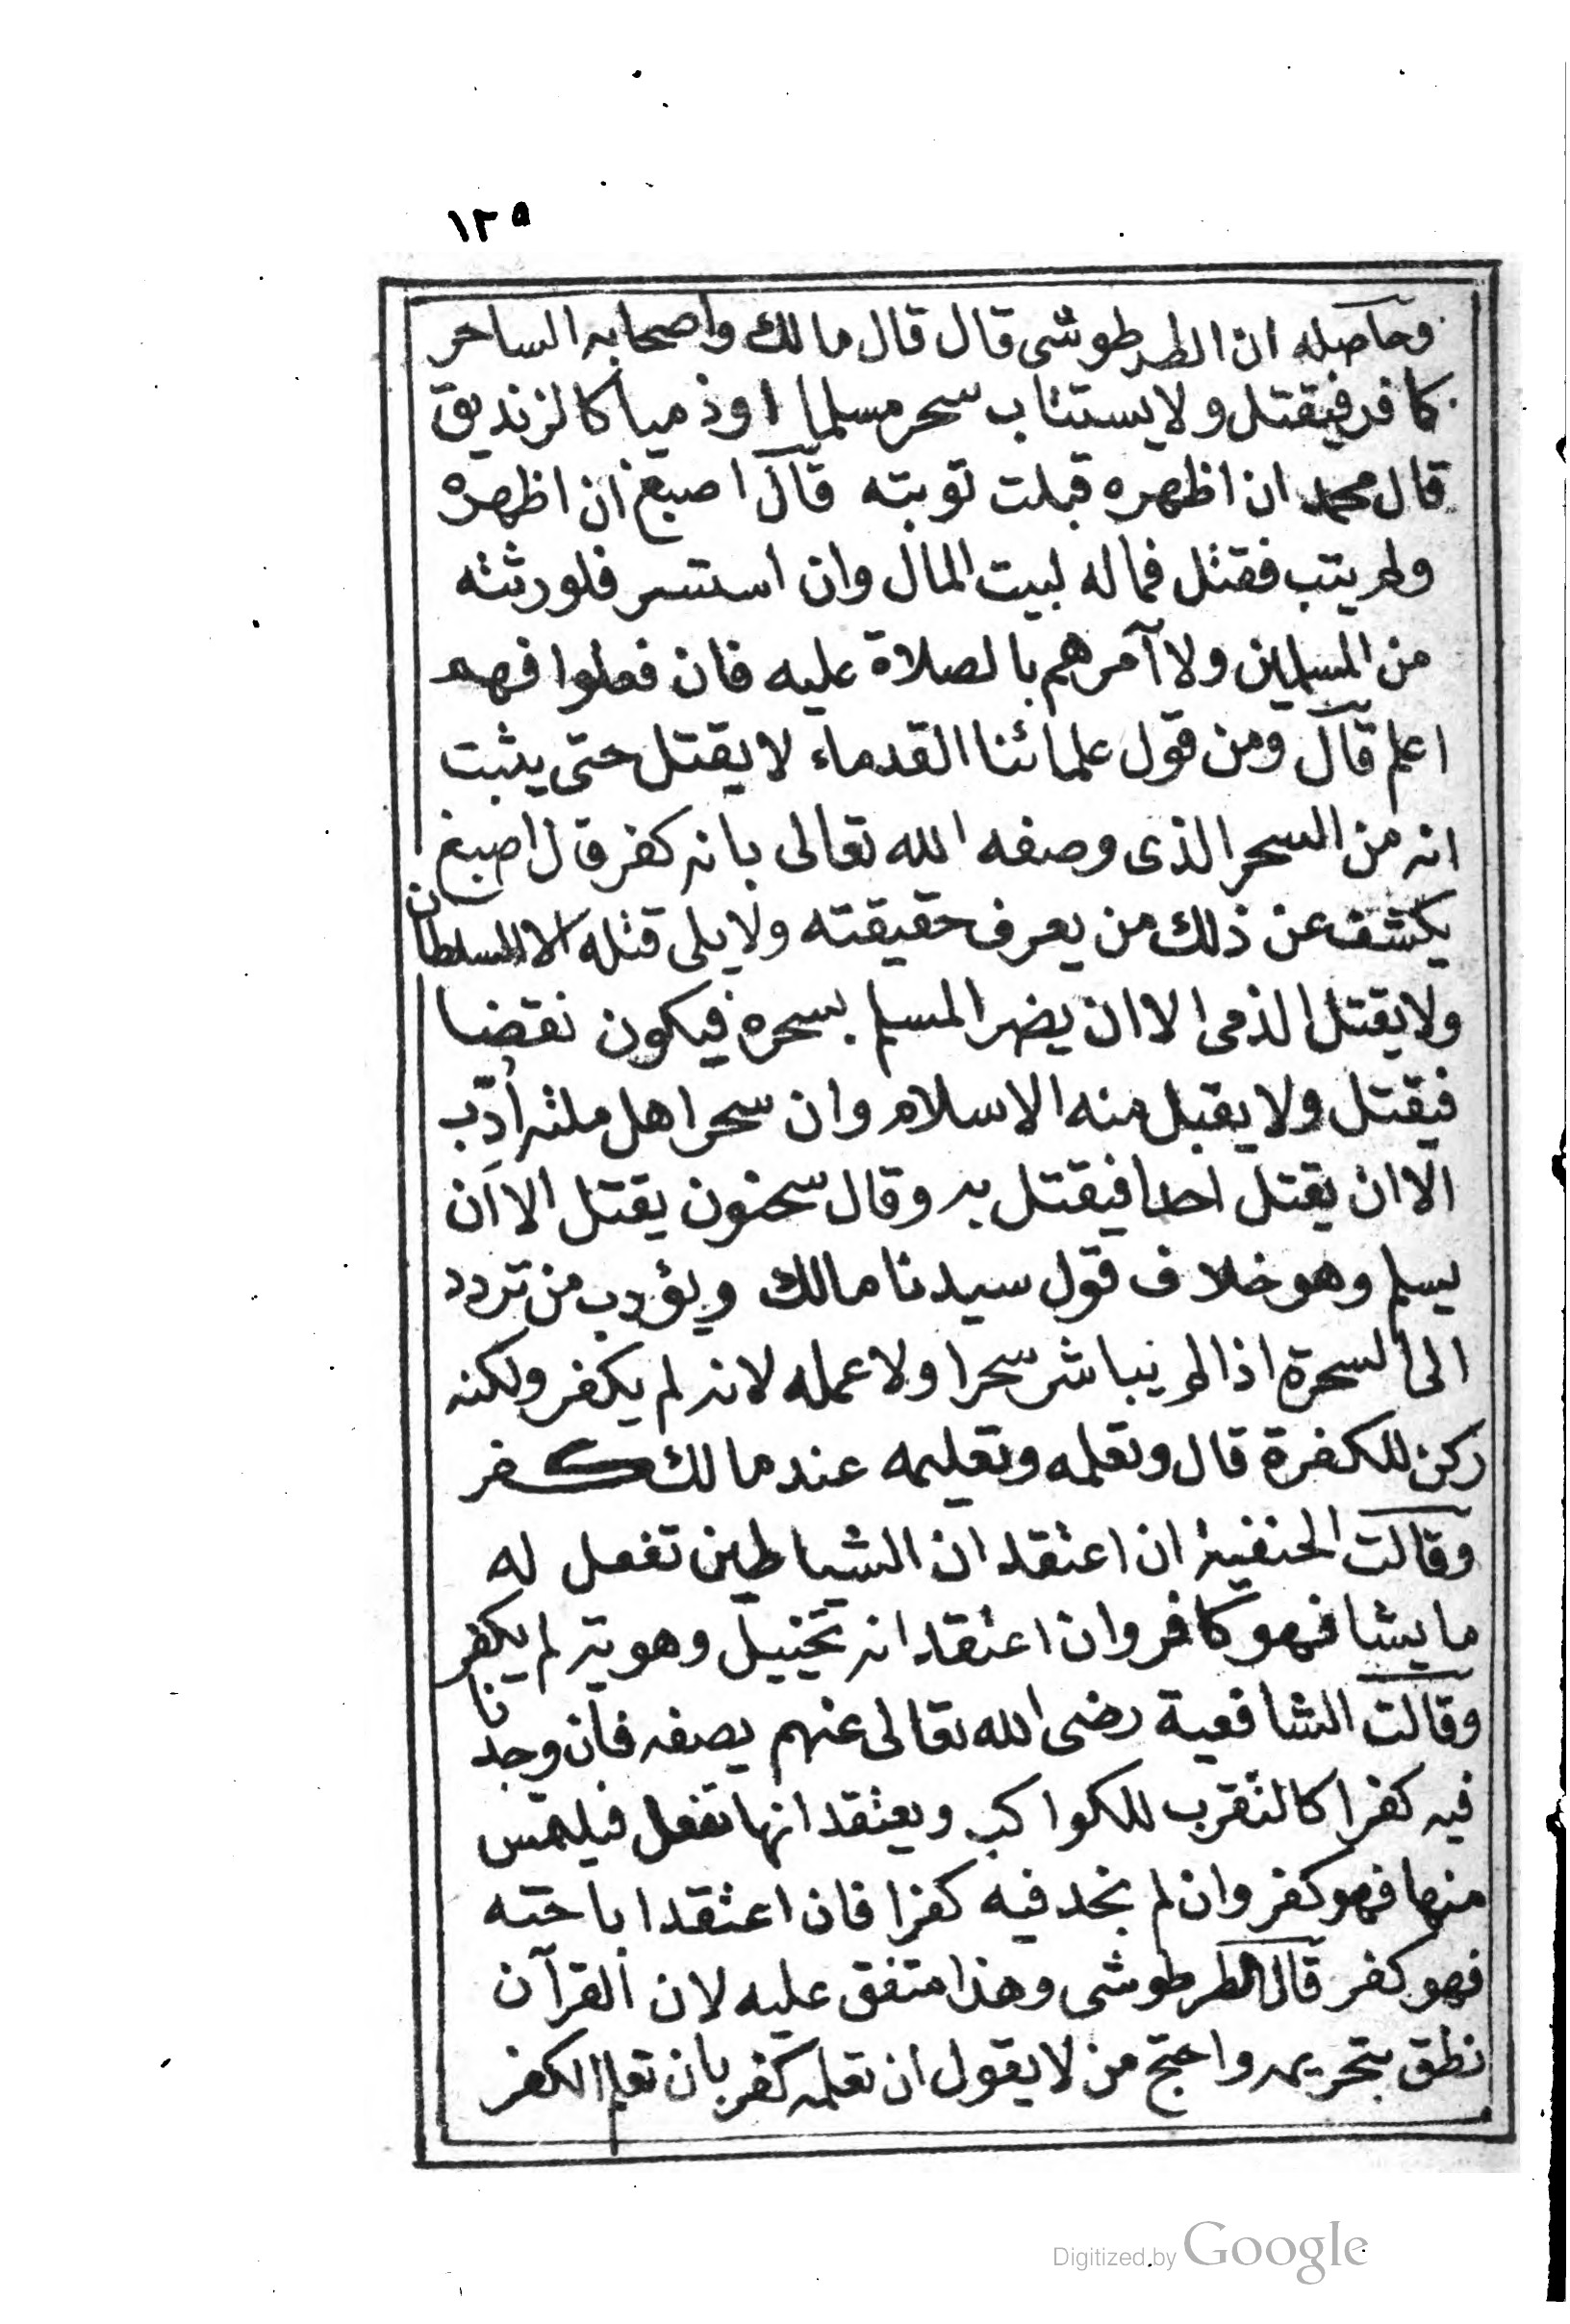 ١٢٥
وحاصله ان الطرطوشى قال قال مالك واصحابه الساحر
كافر فيقتل ولا يستتاب سحر مسلما او ذميا كالزنديق
قال محمد ان اظهره قبلت توبته قال اصبغ ان اظهره
ولم يتب فقتل فماله لبيت المال وان استسر فلورثته
من المسلمين ولا آمرهم بالصلاة عليه فان فعلوا فهم
اعلم قال ومن قول علمائنا القدماء لا يقتل حتى يثبت
انه من السحر الذى وصفه الله تعالى بانه كفر قال اصبغ
يكشف عن ذلك من يعرف حقيقته ولا يلى قتله الا السلطان
ولا يقتل الذمى الا ان يضر المسلم بسحره فيكون نقضا
فيقتل ولا يقبل منه الاسلام وان سحر اهل ملته أدّب
الا ان يقتل احدا فيقتل به وقال سحنون يقتل الا ان
يسلم وهو خلاف قول سيدنا مالك ويؤدب من تردد
الى السحرة اذا لم يباشر سحرا ولا عمله لانه لم يكفر ولكنه
ركن للكفرة قال وتعلمه وتعليمه عند مالك كفر
وقالت الحنفية ان اعتقد ان الشياطين تفعل له
ما يشا فهو كافر وان اعتقد انه تخييل وهويه لم يكفر
وقالت الشافعية رضى الله تعالى عنهم يصفه فان وجدنا
فيه كفرا كالتقرب للكواكب ويعتقد انها تفعل فيلتمس
منها فهو كفر وان لم نجد فيه كفرا فان اعتقد اباحته
فهو كفر قال الطرطوشى وهذا متفق عليه لان القرآن
نطق بتحريمه واحتج من لا يقول ان تعلمه كفر بان تعلم الكفر
Digitized by Google